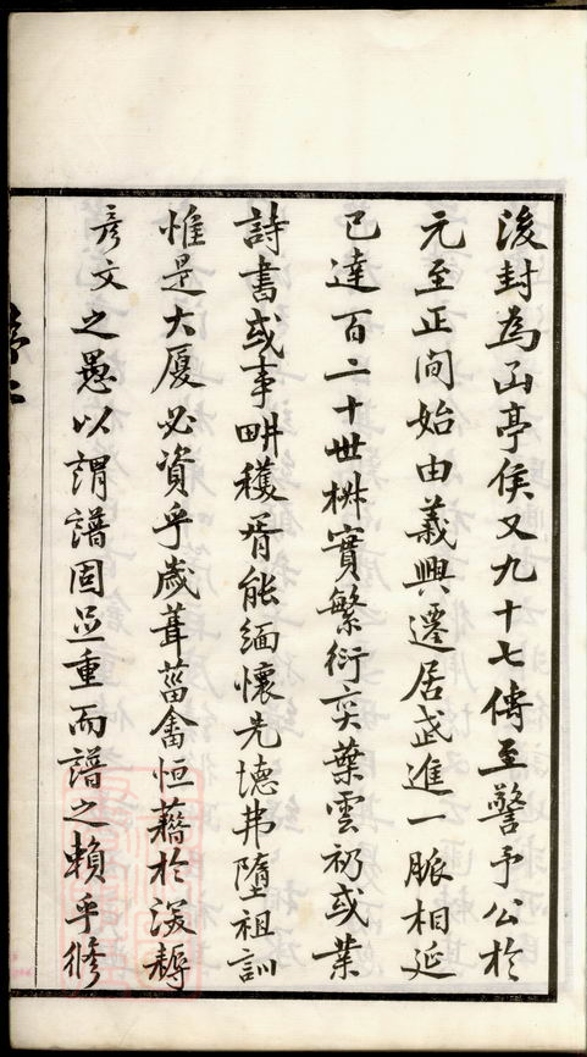 後封為函亭侯又九十七傳至警予公於
元至正间始由義興遷居武進一脈相延
已達百二十世椒實繁衍奕葉雲礽或業
詩書或事畊穫胥能緬懷先德弗墮祖訓
惟是大厦必資乎歲葺菑畬恒藉於深耨
彥文之愚以謂譜固並重而譜之賴乎修
序二